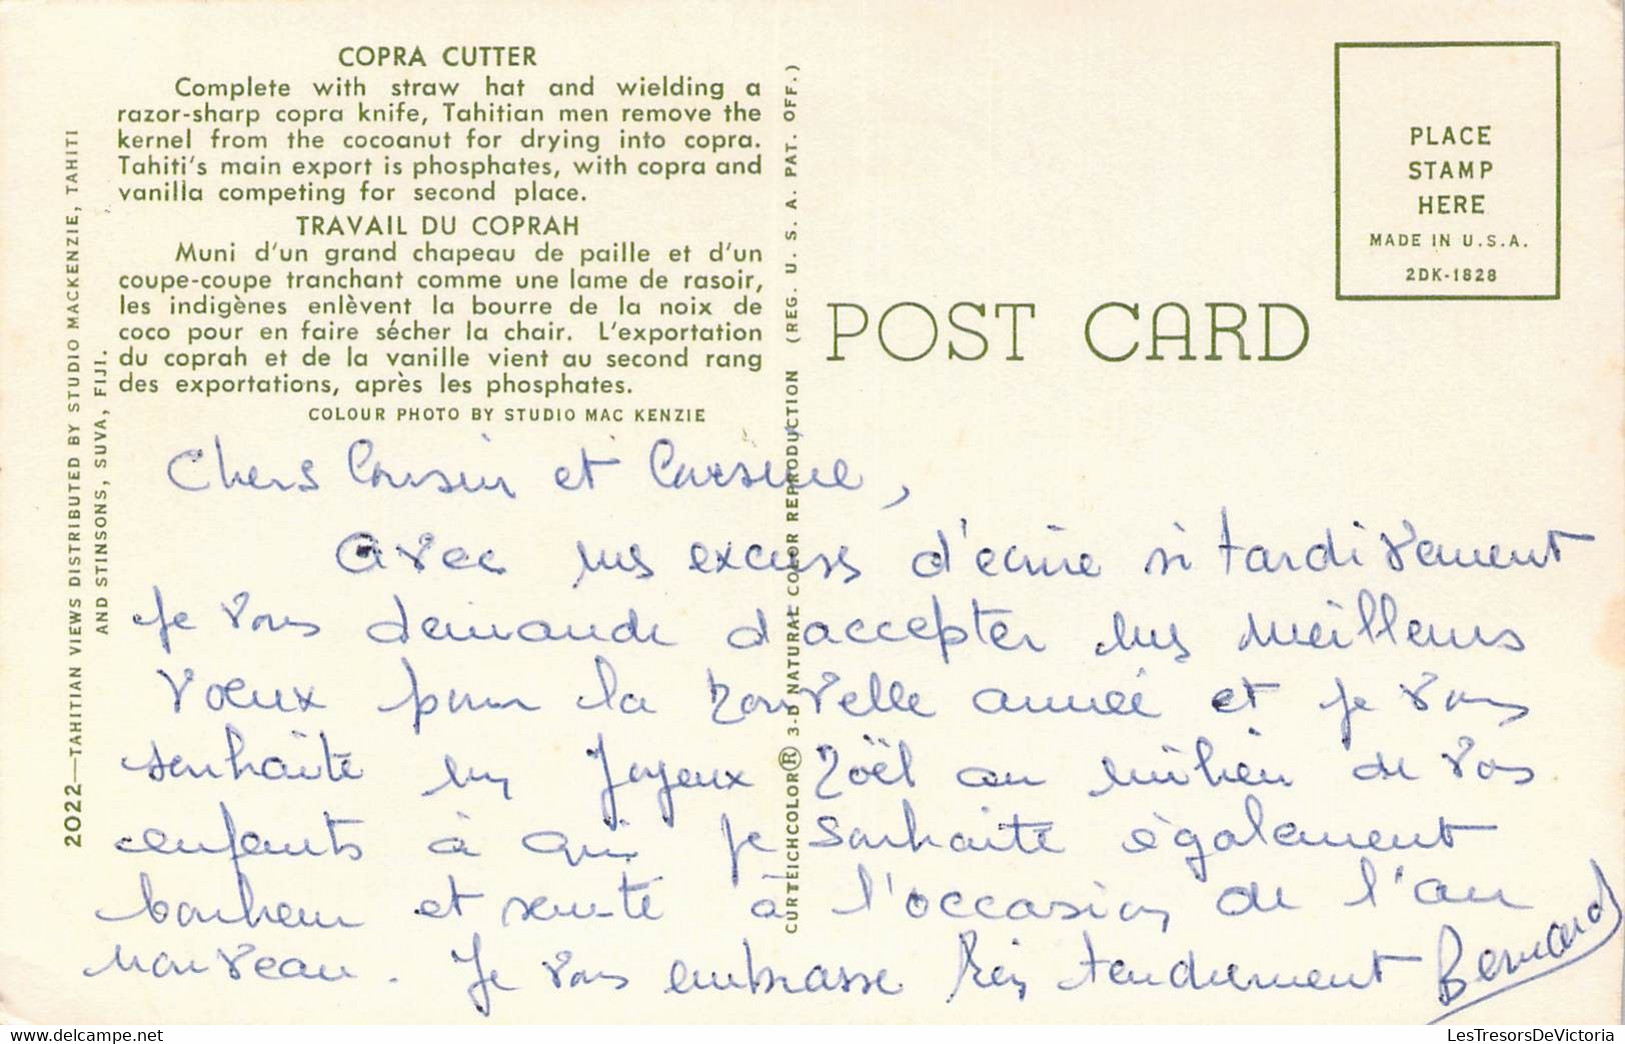 COPRA CUTTER
Complete with straw hat and wielding a
razor-sharp copra knife, Tahitian men remove the
kernel from the cocoanut for drying into copra.
Tahiti's main export is phosphates, with copra and
vanilla competing for second place.
TRAVAIL DU COPRAH
Muni d'un grand chapeau de paille et d'un
coupe-coupe tranchant comme une lame de rasoir,
les indigènes enlèvent la bourre de la noix de
coco pour en faire sécher la chair. L'exportation
du coprah et de la vanille vient au second rang
des exportations, après les phosphates.
COLOUR PHOTO BY STUDIO MAC KENZIE
2022—TAHITIAN VIEWS DISTRIBUTED BY STUDIO MACKENZIE, TAHITI
AND STINSONS, SUVA, FIJI.
CURTEICHCOLOR® 3-D NATURAL COLOR REPRODUCTION (REG. U. S. A. PAT. OFF.)
POST CARD
PLACE
STAMP
HERE
MADE IN U.S.A.
2DK-1828
Chers Cousin et Cousine,
Avec mes excuses d'écrire si tardivement
je vous demande d'accepter mes meilleurs
voeux pour la nouvelle année et je vous
souhaite un Joyeux Noël au milieu de vos
enfants à qui je souhaite également
bonheur et santé à l'occasion de l'an
nouveau. Je vous embrasse bien tendrement Bernard
LesTresorsDeVictoria